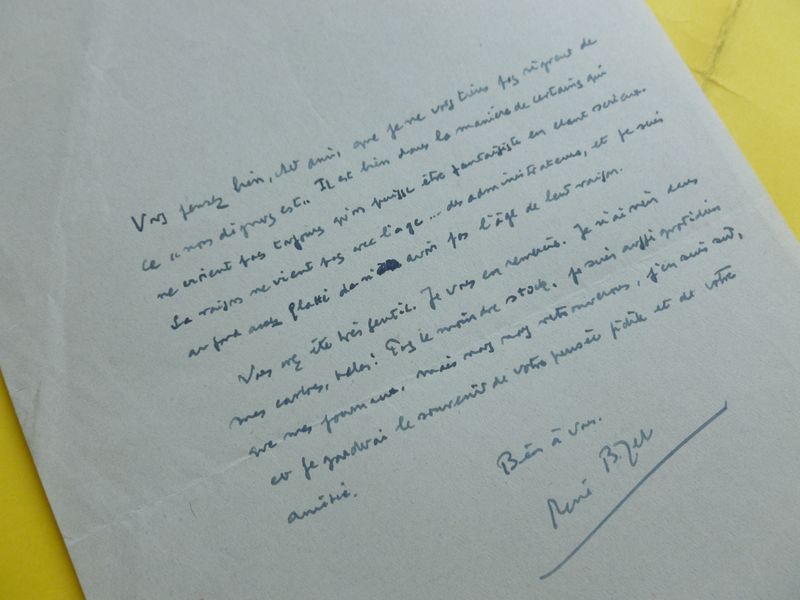 Vous pensez bien, cher ami, que je ne vous tiens pas rigueur de
ce "non dignus est". Il est bien dans la manière de certains qui
ne croient pas toujours qu'on puisse être fantaisiste en étant sérieux.
La raison ne vient pas avec l'âge... des administrateurs, et je suis
au fond assez flatté de n'avoir pas l'âge de leur raison.
Vous avez été très gentil. Je vous en remercie. Je n'ai rien dans
mes cartons, hélas! Pas le moindre stock. Je suis aussi quotidien
que mes journaux, mais nous nous retrouverons, j'en suis sûr,
et je garderai le souvenir de votre pensée fidèle et de votre
amitié.
Bien à vous.
René Bizet